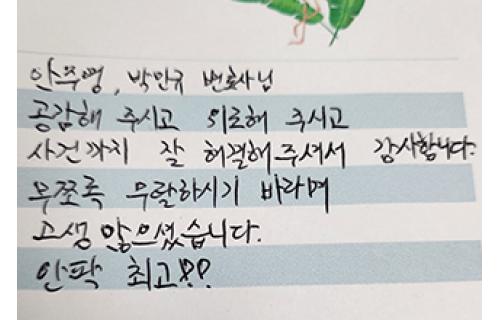 안주영, 박민규 변호사님
공감해 주시고 위로해 주시고
사건까지 잘 해결해주셔서 감사합니다.
무쪼록 무탈하시기 바라며
고생 많으셨습니다.
안팍 최고!!